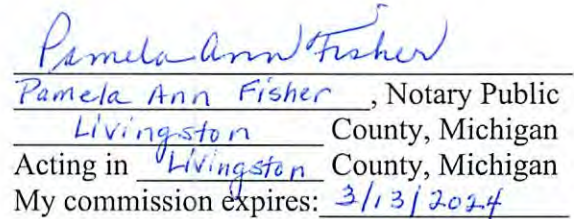 Pamela Ann Fisher
Pamela Ann Fisher, Notary Public
Livingston County, Michigan
Acting in Livingston County, Michigan
My commission expires: 3/13/2024